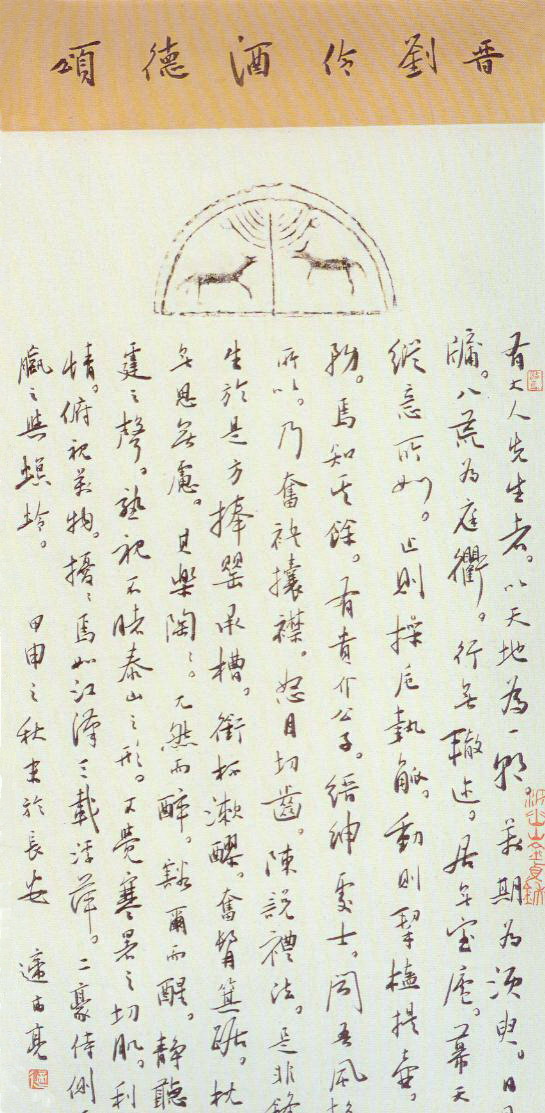 晋劉伶酒德頌
有大人先生者。以天地為一朝。萬期為須臾。日月
牖。八荒為庭衢。行無轍迹。居無室廬。幕天
縱意所如。止則操卮執觚。動則挈榼提壺。
務。焉知其餘。有貴介公子。縉紳處士。聞吾風
所以。乃奮袂攘襟。怒目切齒。陳說禮法。是非鋒
生於是方捧罌承槽。銜杯漱醪。奮髯箕踞。枕
無思無慮。其樂陶ミ。兀然而醉。豁爾而醒。静聽
霆之聲。熟視不睹泰山之形。不覺寒暑之切肌。利
情。俯視萬物。擾ミ焉如江漢之載浮萍。二豪侍側
蠃之與螟蛉。 甲申之秋書於長安